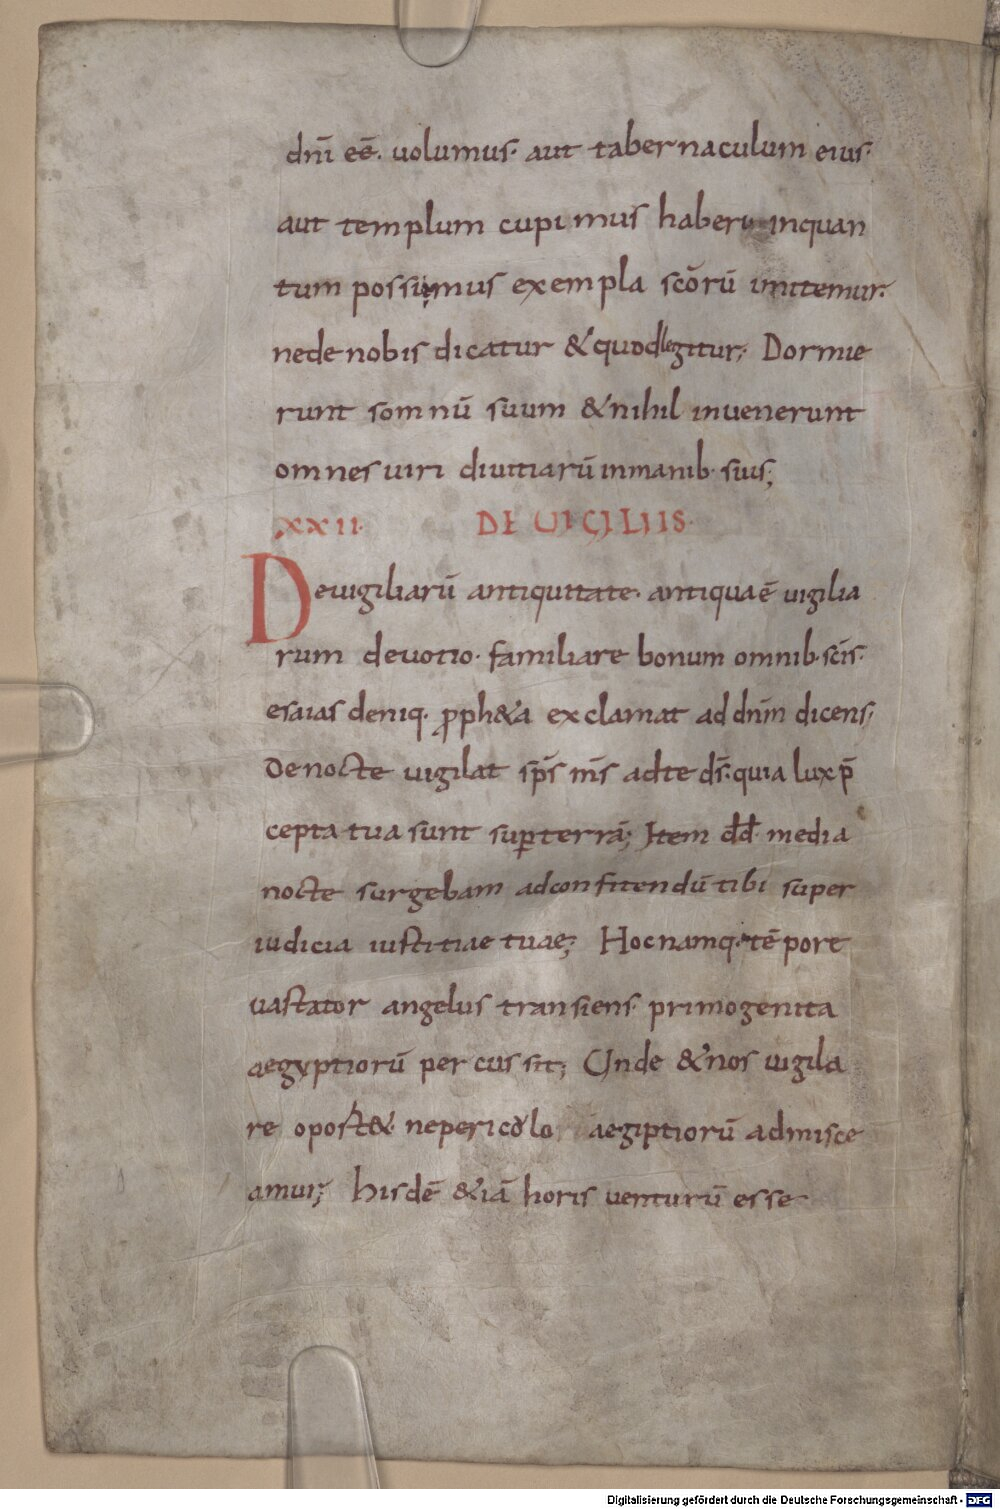 dnī eē. uolumus. aut tabernaculum eius.
aut templum cupimus haberi inquan
tum possumus exempla scōrū imitemur.
nedenobis dicatur &quodlegitur; Dormie
runt somnū suum &nihil inuenerunt
omnes uiri diuitiarū inmanib. suis;
XXII. DE UIGILIIS.
Deuigiliarū antiquitate. antiquaē uigilia
rum deuotio. familiare bonum omnib. scīs.
esaias deniq. proph&a exclamat ad dnm̄ dicens;
Denocte uigilat sp̄s m̄s adte ds̄. quia lux p̄
cepta tua sunt sup terrā; Item dd̄. media
nocte surgebam adconfitendū tibi super
iudicia iustitiae tuae; Hocnamq. tēpore
uastator angelus transiens. primogenita
aegyptiorū percussit; Unde &nos uigila
re oport&. nepericolo aegiptiorū admisce
amur; hisdē &iā horis uenturū esse